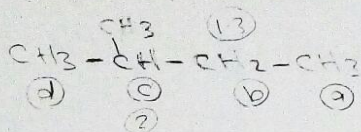 CH3 (13)
CH3-CH-CH2-CH3
(d) (c) (b) (a)
(2)